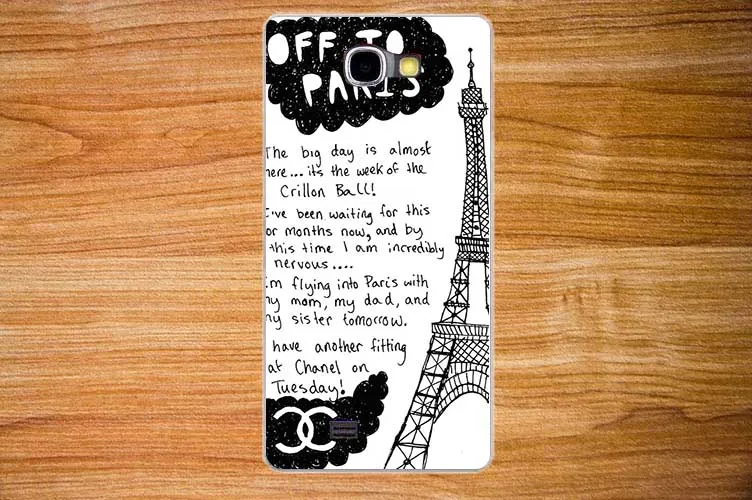 OFF TO
PARIS
The big day is almost
here... it's the week of the
Crillon Ball!
I've been waiting for this
or months now, and by
this time I am incredibly
nervous....
I'm flying into Paris with
my mom, my dad, and
my sister tomorrow.
have another fitting
at Chanel on
Tuesday!